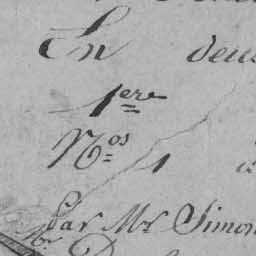 En deux
1ere
Nos 1
Par Mr Simon